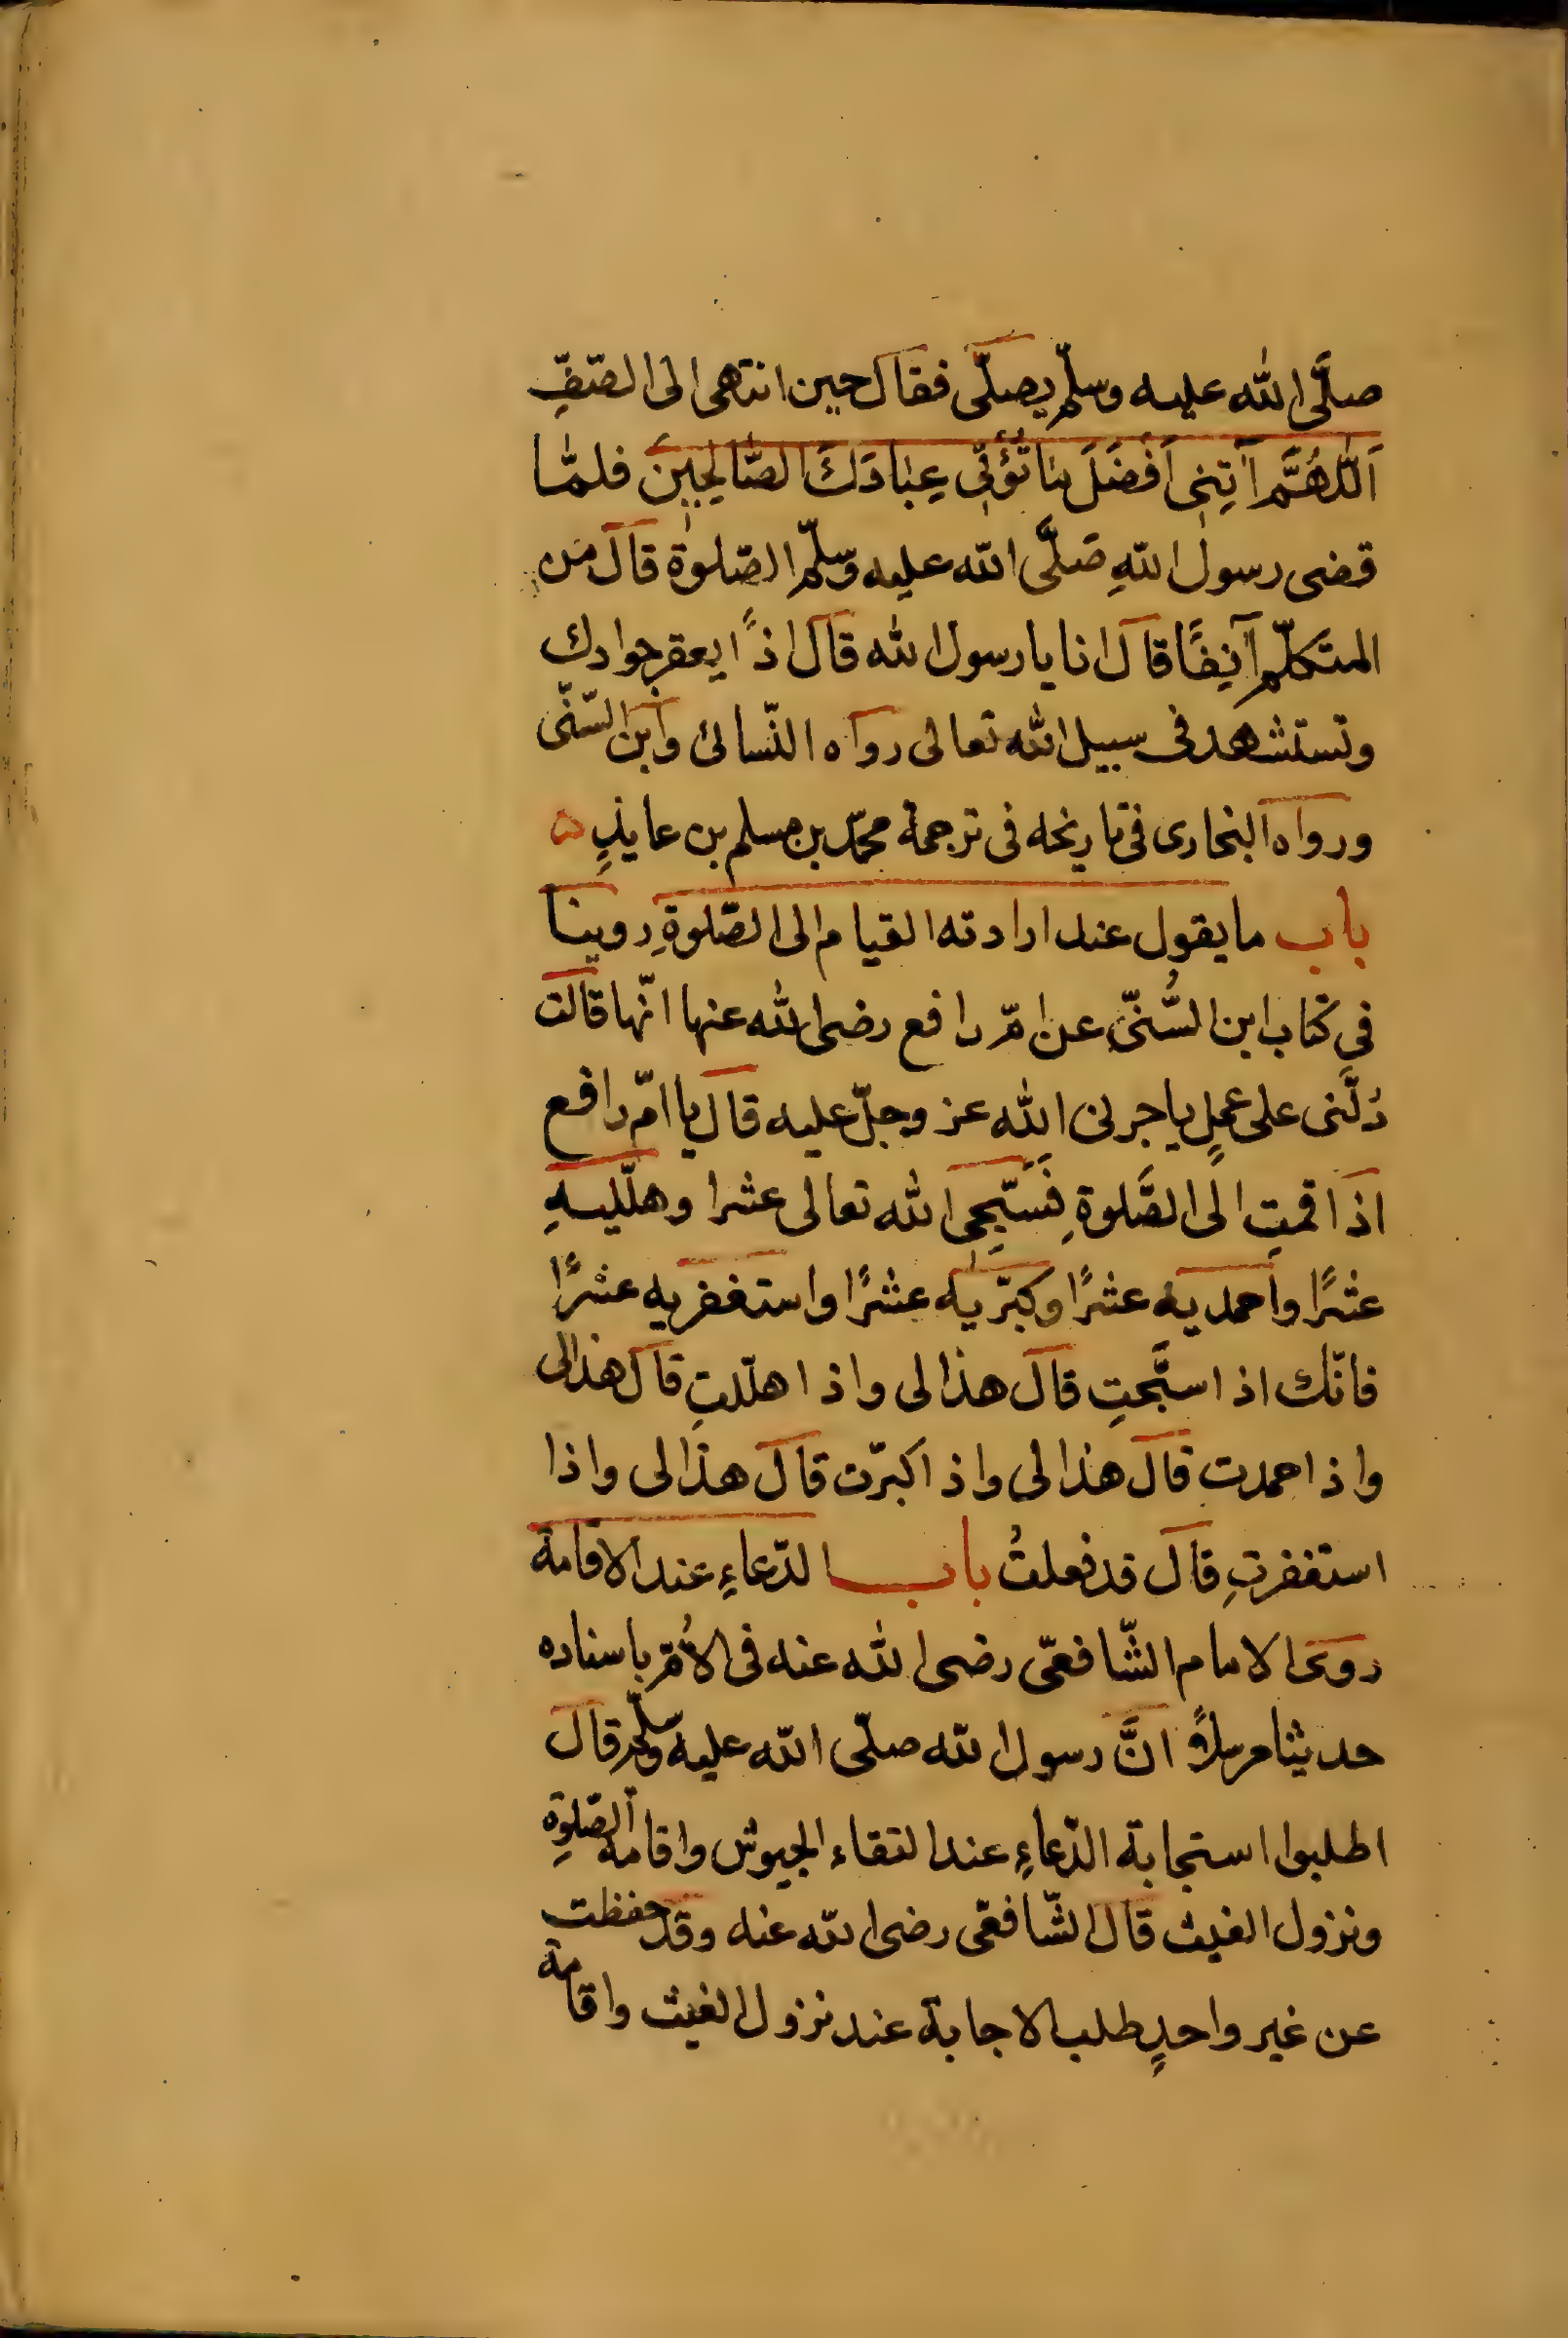 صلَّى الله عليه وسلّم يصلّى فقال حين انتهى الى الصّفِّ
اَللّٰهُمَّ آتِنِى اَفْضَلَ مَا تُؤْتِى عِبَادَكَ الصَّالِحِينَ فلمّا
قضى رسول اللهِ صَلَّى الله عليه وسلّم الصّلوٰة قال مَن
المتكلّم آنِفًا قال انا يا رسول الله قال اذًا يعقر جوادك
وتستشهد فى سبيل الله تعالى رواه النّسائى وابن السّنّى
ورواه البخارى فى تاريخه فى ترجمة محمّد بن مسلم بن عايذٍ ه
باب ما يقول عند ارادته القيام الى الصّلوةِ روينا
فى كتاب ابن السُّنّى عن امّ رافع رضى الله عنها انّها قالت
دُلّنى على عملٍ ياجرنى الله عز وجلّ عليه قال يا امّ رافع
اذا قمتِ الى الصَّلوة فَسَبِّحِى الله تعالى عشرا وهلّليهِ
عشرًا واحمديه عشرًا وكبّريه عشرًا واستغفريه عشرًا
فانّك اذا سبَّحتِ قال هذا لى واذا هلّلتِ قال هذا لى
واذا حمدت قال هذا لى واذا كبّرت قال هذا لى واذا
استغفرتِ قال قد فعلتُ باب الدّعاءِ عند الاقامة
روى الامام الشّافعّى رضى الله عنه فى الأمّ باسناده
حديثا مرسلاً انَّ رسول الله صلّى الله عليه وسلّم قال
اطلبوا استجابة الدّعاءِ عند التقاء الجيوش واقامة الصّلوةِ
ونزول الغيث قال الشّافعّى رضى الله عنه وقد حفظت
عن غير واحدٍ طلب الاجابة عند نزول الغيث واقامة